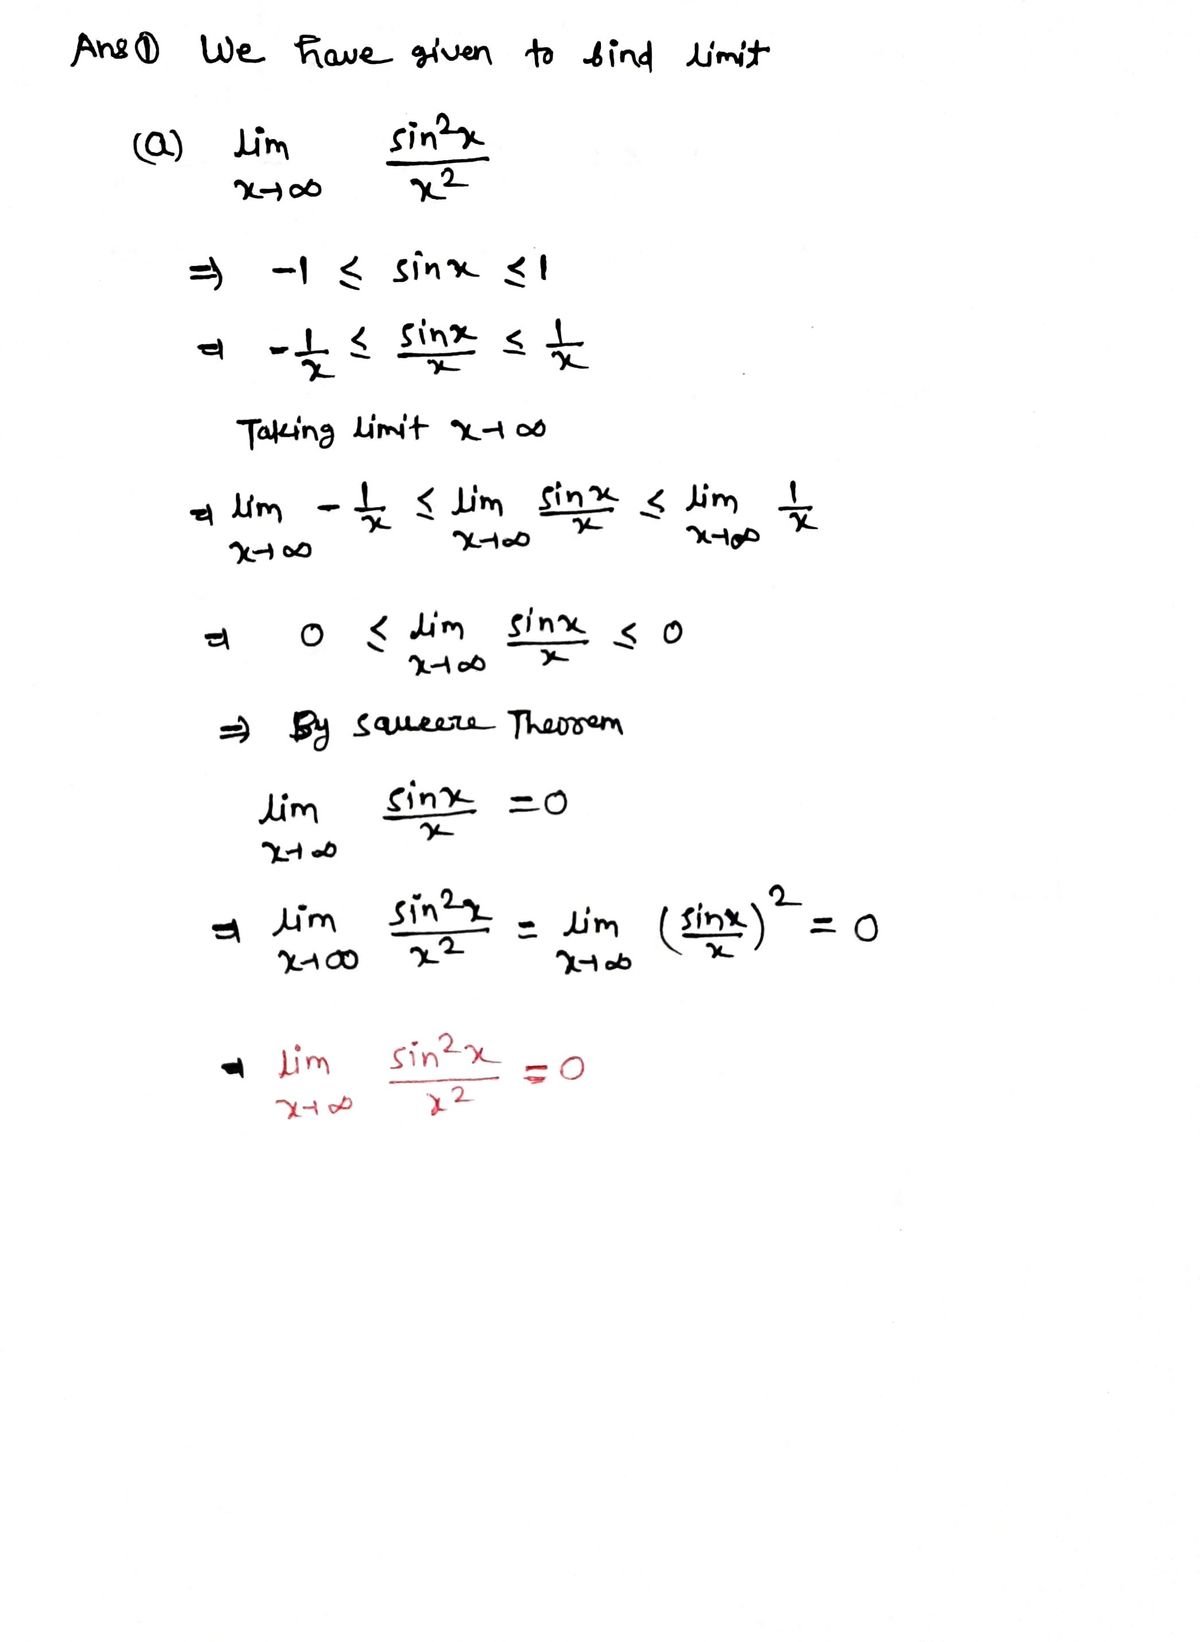 Ans ① We have given to find limit
(a) lim x→∞ sin²x / x²
⇒ -1 ≤ sinx ≤ 1
⇒ -1/x ≤ sinx/x ≤ 1/x
Taking limit x→∞
⇒ lim x→∞ -1/x ≤ lim x→∞ sinx/x ≤ lim x→∞ 1/x
⇒ 0 ≤ lim x→∞ sinx/x ≤ 0
⇒ By squeeze Theorem
lim x→∞ sinx/x = 0
⇒ lim x→∞ sin²x/x² = lim x→∞ (sinx/x)² = 0
⇒ lim x→∞ sin²x/x² = 0